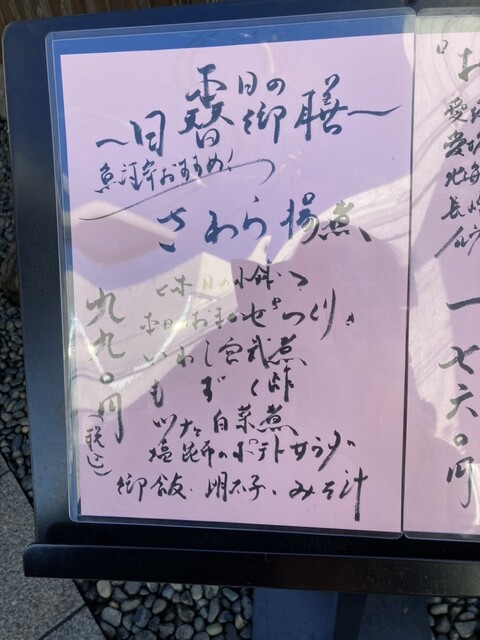 日の
〜日替御膳〜
魚河岸おすすめ!
さわら揚煮
〜本日の小鉢〜
本日おまかせ3つくり
いわし宮武煮
もずく酢
ツナと白菜煮
塩昆布のポテトサラダ
御飯、明太子、みそ汁
九九〇円
(税込)
『お
愛
愛
北海
長崎
一七六〇円